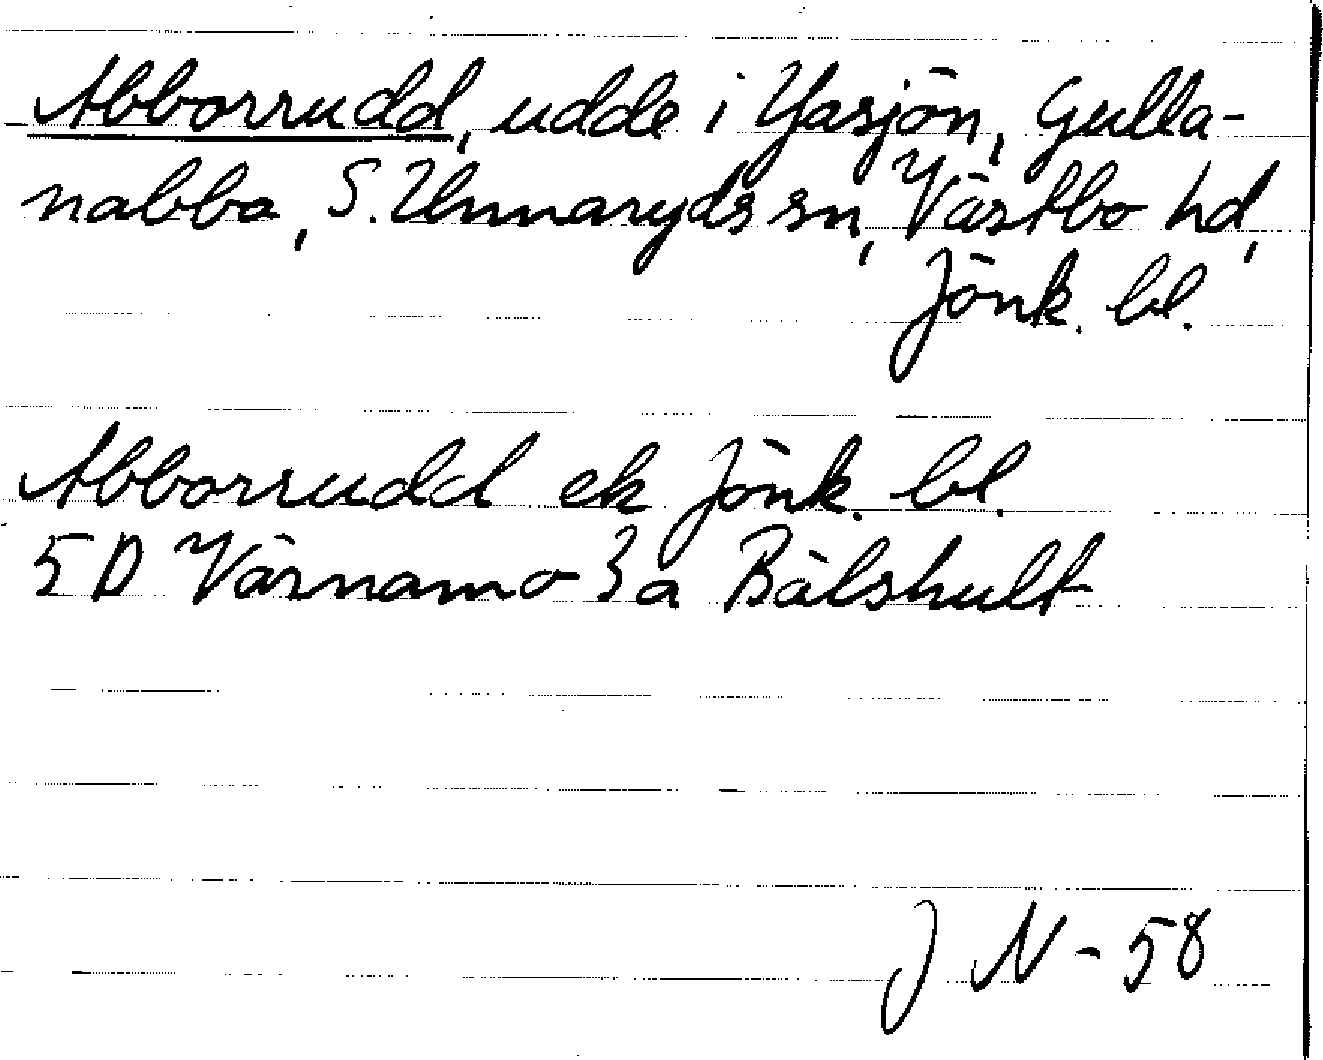 Abborrudd, udde i Yasjön, Gulla-
nabba, S. Unnaryds sn, Västbo hd,
Jönk. bl.
Abborrudd ek Jönk. bl.
5 D Värnamo 3 a Bälshult
J N - 58